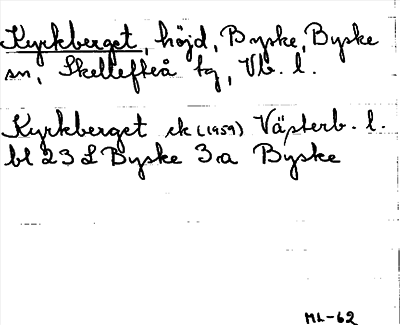 Kyrkberget, höjd, Byske, Byske
sn, Skellefteå tg, Vb. l.
Kyrkberget ek (1959) Västerb. l.
bl 23 L Byske 3:a Byske
ML-62